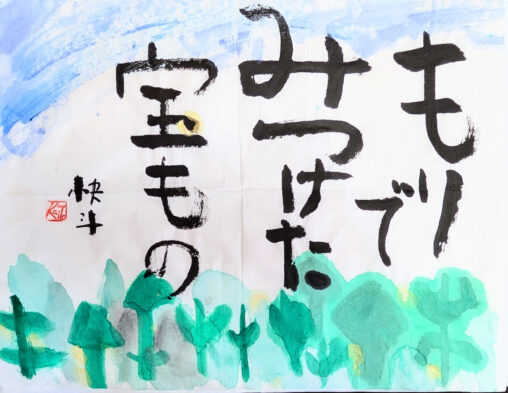 もりで
みつけた
宝もの
快斗